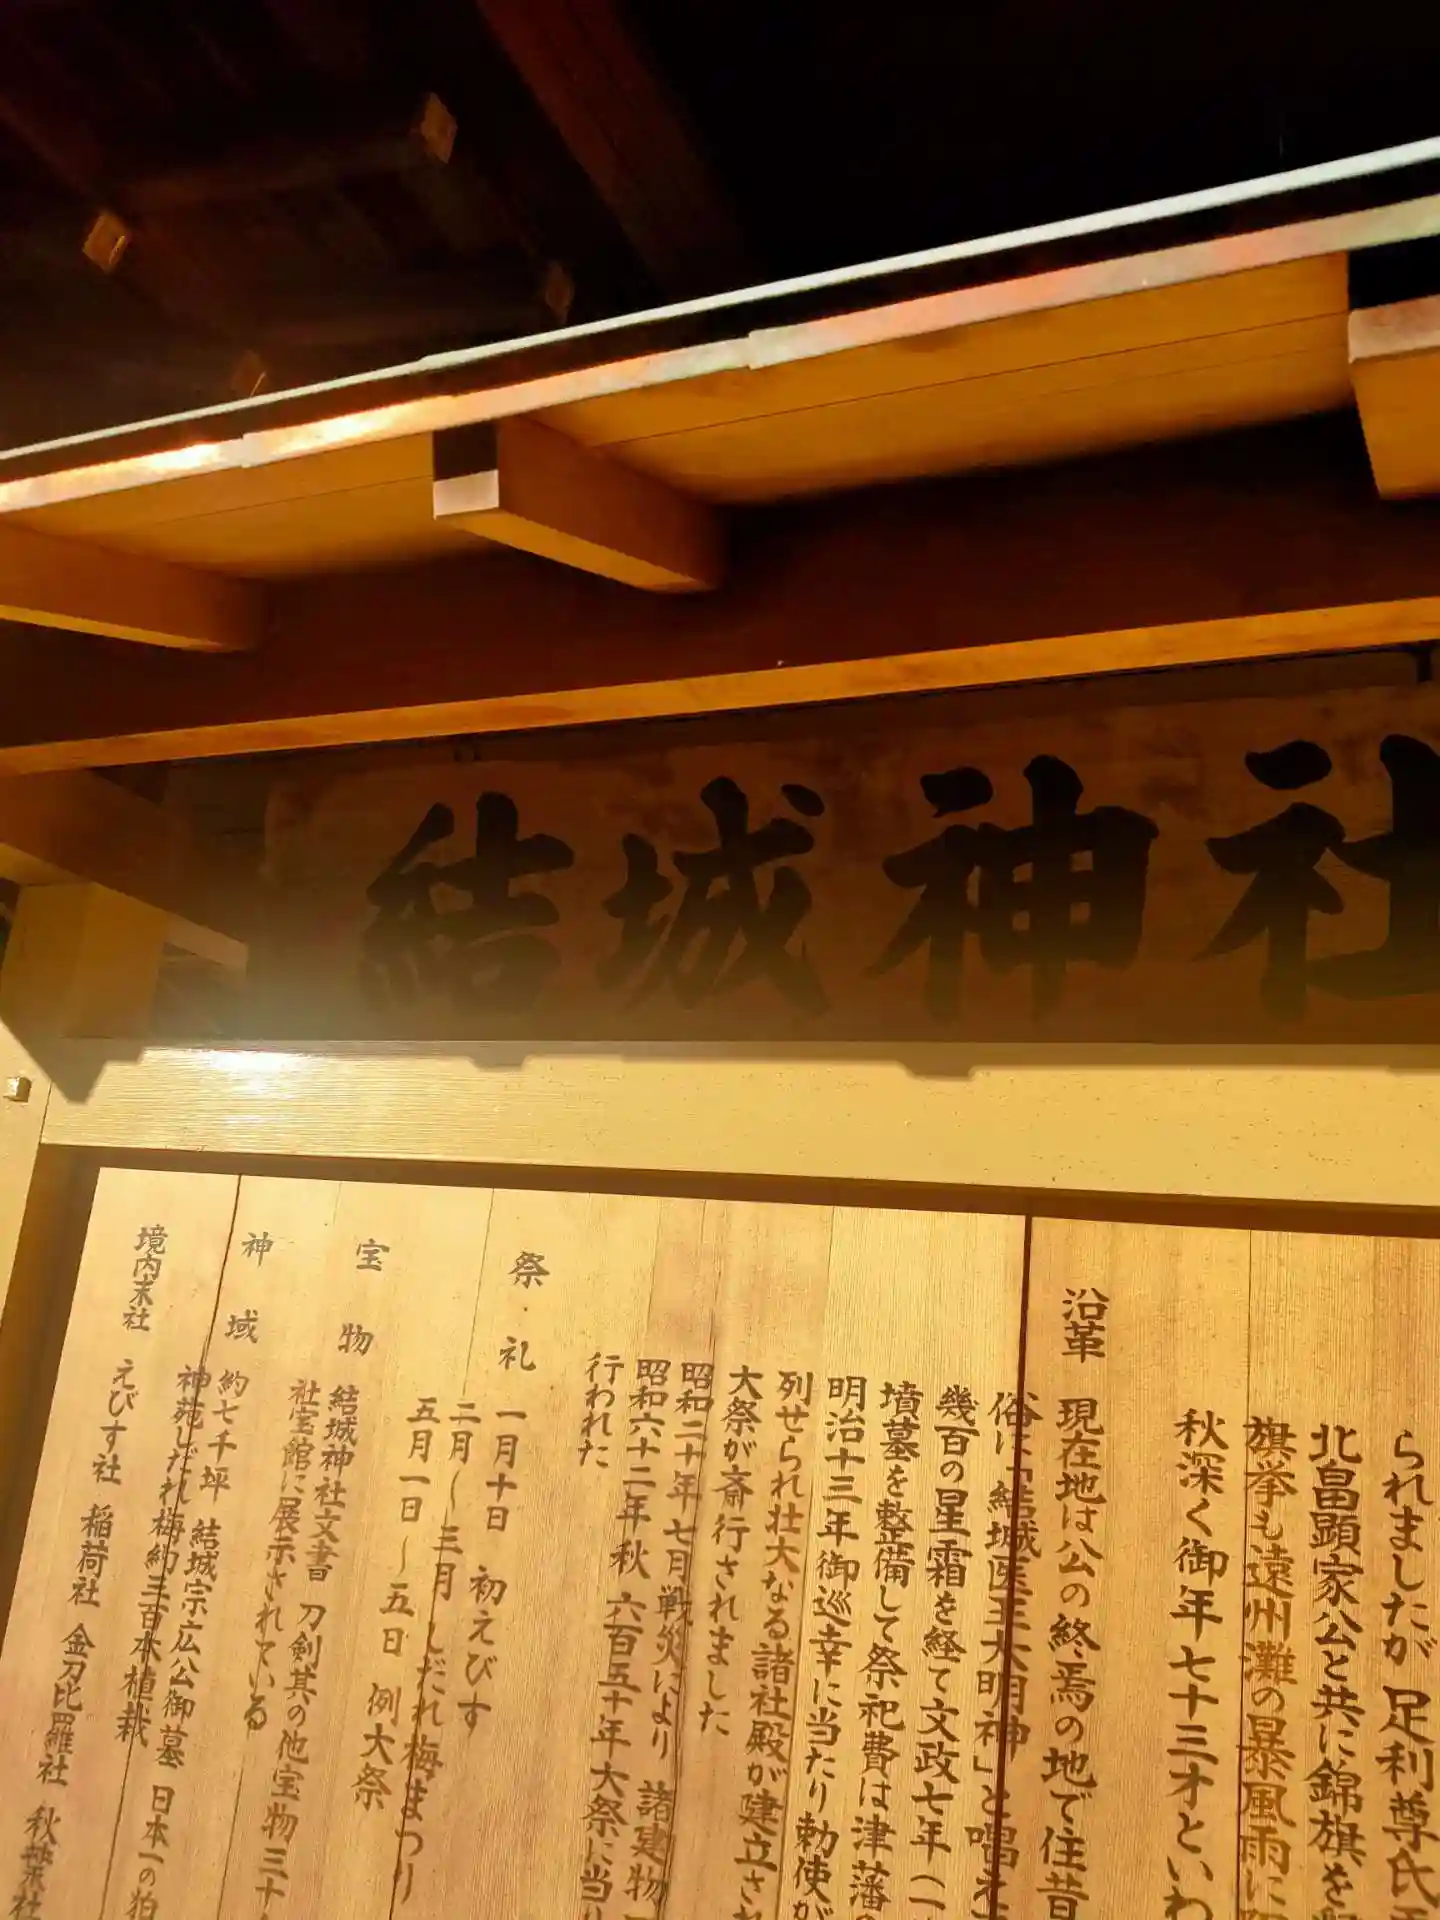 結城神社
られましたが 足利尊氏
北畠顕家公と共に錦旗を
旗挙も遠州灘の暴風雨に
秋深く御年七十三才といわ
沿革 現在地は公の終焉の地で住昔
俗に「結城医王大明神」と唱え
幾百の星霜を経て文政七年(一
墳墓を整備して祭祀費は津藩の
明治十三年御巡幸に当たり勅使が
列せられ壮大なる諸社殿が建立され
大祭が斎行されました
昭和二十年七月戦災により 諸建物
昭和六十二年秋 六百五十年大祭に当り
行われた
祭・礼 一月十日 初えびす
二月〜三月 しだれ梅まつり
五月一日〜五日 例大祭
宝物 結城神社文書 刀剣其の他宝物三十
社宝館に展示されている
神域 約七千坪 結城宗広公御墓 日本一の狛
神苑しだれ梅約三百本植栽
境内末社 えびす社 稲荷社 金刀比羅社 秋葉社